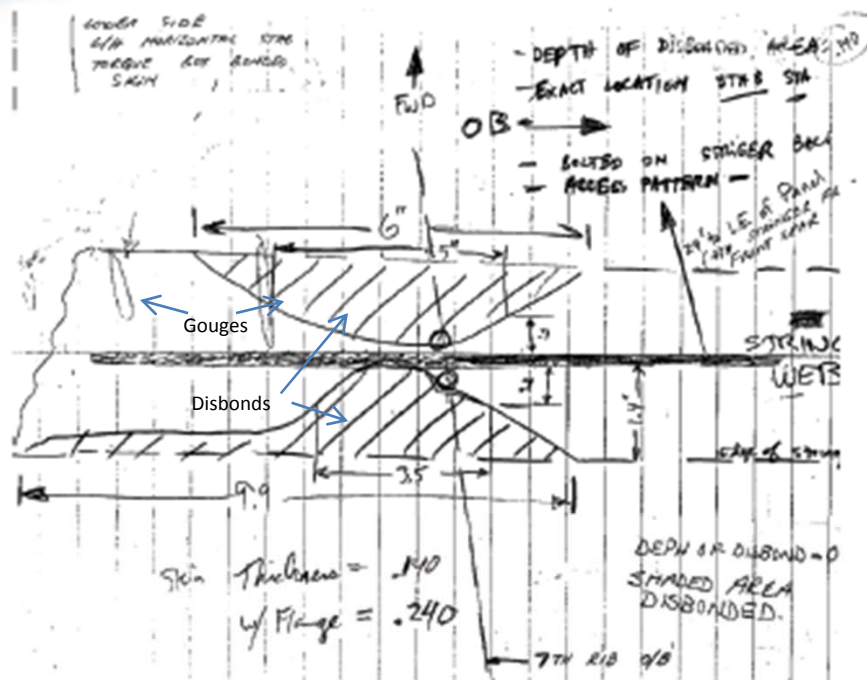 LOWER SIDE
L/H HORIZONTAL STAB
TORQUE BOX BONDED
SKIN
- DEPTH OF DISBONDED AREA: .140
- EXACT LOCATION STAB STA
FWD
OB
- BOLTED ON STRINGER
- ACCESS PATTERN -
29" to L.E. of Panel
FRONT SPAR
6"
5"
Gouges
STRING
WEB
Disbonds
1.4"
edge of string
3.5
9.9
Skin Thickness = .140
w/ Flange = .240
DEPH OF DISBOND = 0
SHADED AREA
DISBONDED.
7TH RIB O/B